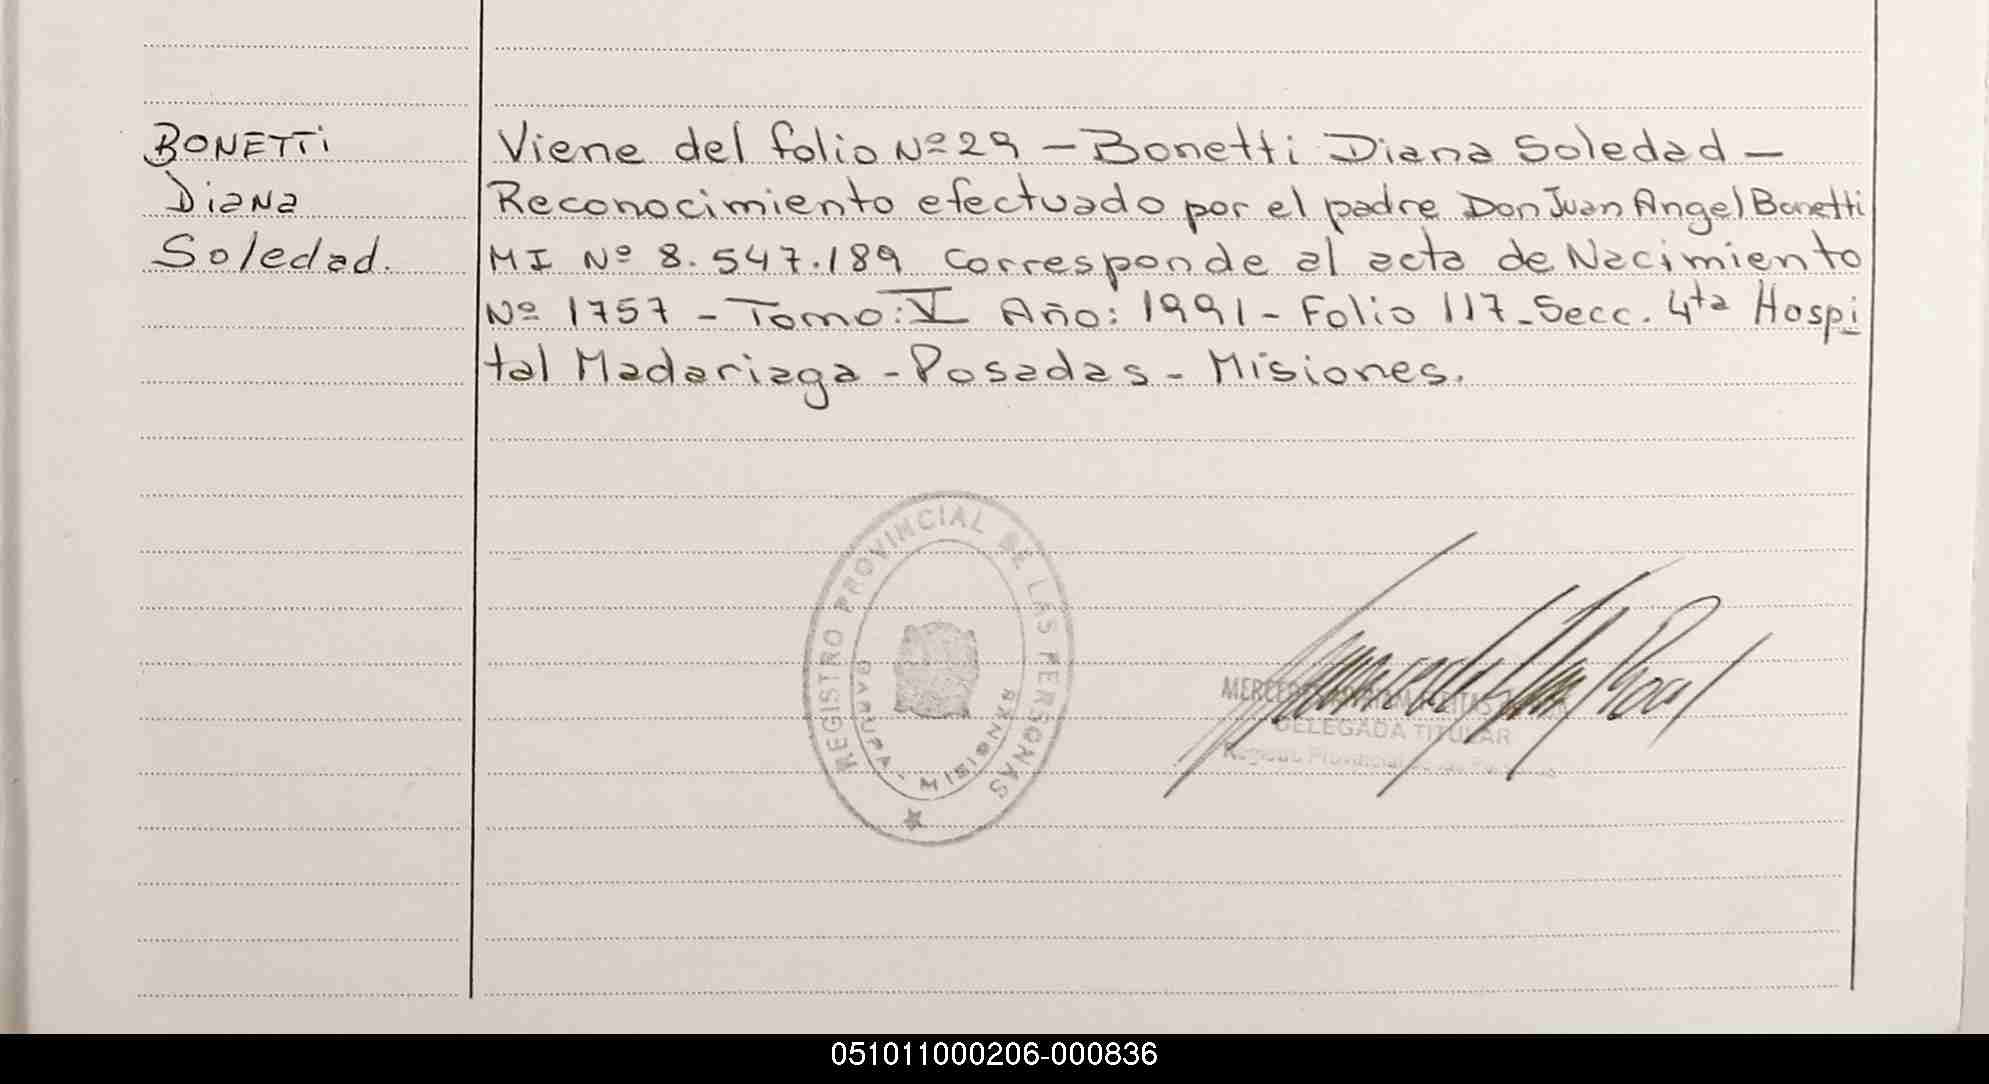 BONETTi
Diana
Soledad.
Viene del folio Nº 29 - Bonetti Diana Soledad -
Reconocimiento efectuado por el padre Don Juan Angel Bonetti
MI Nº 8.547.189 corresponde al acta de Nacimiento
Nº 1757 - Tomo: V Año: 1991 - Folio 117 - Secc. 4ta Hospi
tal Madariaga - Posadas - Misiones.
REGISTRO PROVINCIAL DE LAS PERSONAS
GARUPA - MISIONES
DELEGADA TITULAR
051011000206-000836